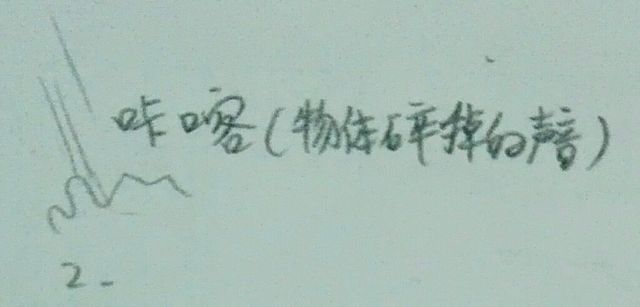 咔喀(物体碎掉的声音)
2-